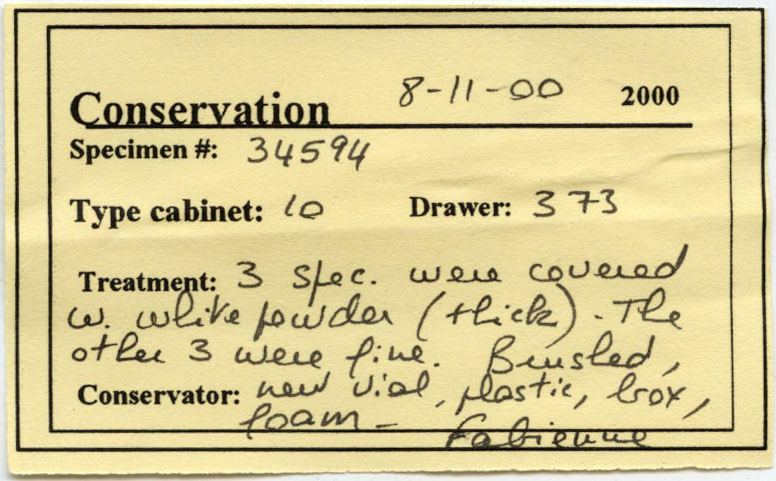 Conservation 8-11-00 2000
Specimen #: 34594
Type cabinet: 10 Drawer: 373
Treatment: 3 spec. were covered
w. white powder (thick). The
other 3 were fine. Brushed,
Conservator: new vial, plastic, box,
foam-
Fabienne